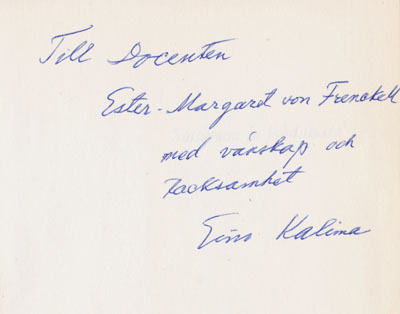 Till Docenten
Ester-Margaret von Frenckell
med vänskap och
tacksamhet
Eino Kalima